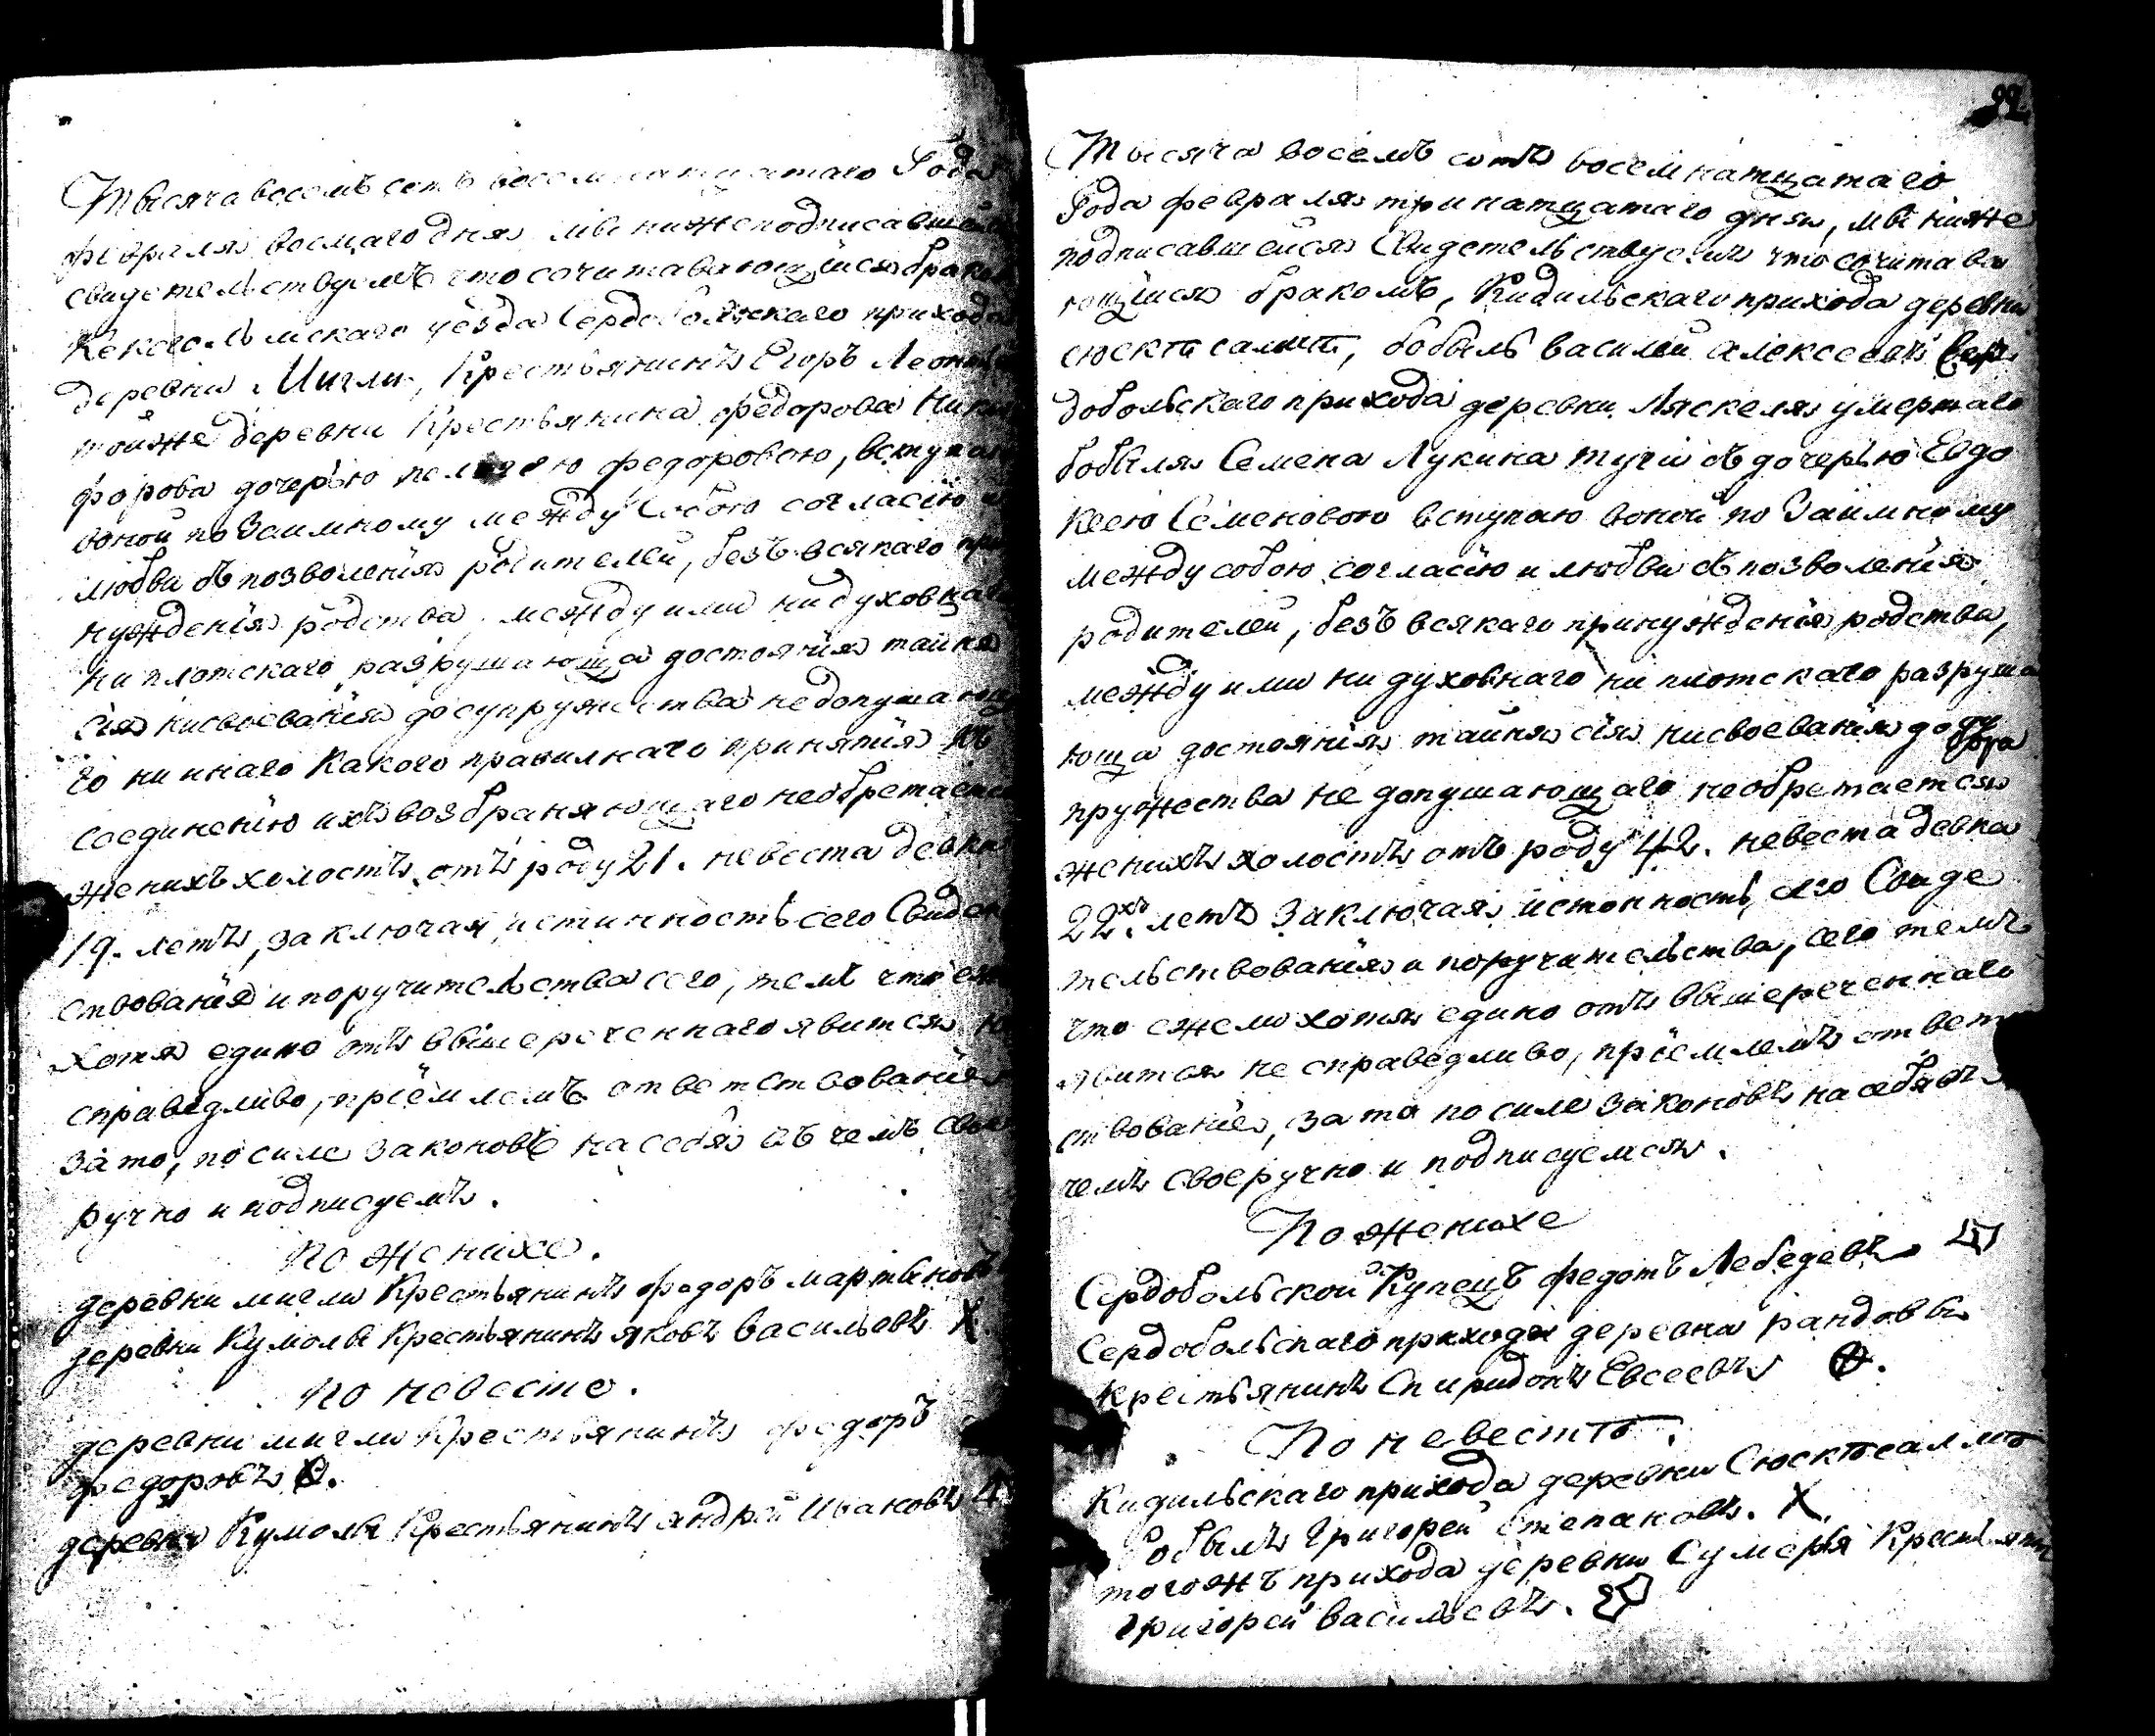 Тысяча восемъ сотъ восемнатцатаго Года
февраля восмаго дня мы нижеподписавшейся
свидетельствуемъ что сочитавающійся бракомъ
Кексголмскаго уезда Сердобольскаго прихода
деревни Мигли, Крестьянинъ Егоръ
тойже деревни Крестьянина федорова
форова дочерью федоровою,
воной по Заимному между Собою согласію и
любви съ позволенія родителей, безъ всякаго при
нужденія родства, между ими ни духовнаго
ни плотскаго разрушающа достоянія тайня
сія нисвоеванія досупружества недопушающа
го ни инаго Какого правилнаго принятія къ
соединенію ихъ возбраняющаго необретается
женихъ холостъ отъ роду 21. невеста девка
19. летъ, заключая истинность сего Свидетель
ствованія ипоручительства сего, темъ что ежели
хотя едино отъ вышереченнаго явится не
справедливо, пріемлемъ ответствованія
зато, посиле законовъ насебя въ чемъ свое
ручно и подписуемъ.
по женихе.
деревни мигли Крестьянинъ федоръ мартыновъ
деревни Кумолы Крестьянинъ яковъ васильевъ X
по невесте.
деревни мигли Крестьянинъ федоръ
федоровъ
деревни Кумолы Крестьянинъ андрей Ивановъ
92
Тысяча восемъ сотъ восемнатцатаго
Года февраля тринатцатаго дня, мы ниже
подписавшейся Свидетельствуемъ что сочитава
ющійся бракомъ, Кидильскаго прихода деревни
сюсктѣсалмѣ, бобыль василей алексеевъ Сер
добольскаго прихода деревни Ляскеля умершаго
бобыля Семена Лукина съ дочерью Евдо
кеею Семеновою вступаю воной по Заимному
между собою согласію и любви съ позволенія
родителей, безъ всякаго принужденія родства,
между ими ни духовнаго ни плотскаго разруша
юща достоянія тайня сія нисвоеванія досу
пружества не допушающаго необретается
женихъ холостъ отъ роду 42. невеста девка
22.хъ летъ Заключая истонность, сего Свиде
тельствованія и поручительства, сего темъ
что ежели хотя едино отъ вышереченнаго
явится не справедливо, пріемлемъ ответ
ствованіе, зато посиле законовъ насебя въ
чемъ своеручно и подписуемся.
По женихе
Сердобольской Купецъ федотъ Лебедевъ
Сердобольскаго прихода деревни рандовы
крестьянинъ Спиридонъ Евсеевъ
По невестѣ.
Кидильскаго прихода деревни Сюсктѣсалмѣ
бобылъ григорей степановъ. X.
тогожъ прихода деревни Сумерья Крестьянинъ
григорей васильевъ.